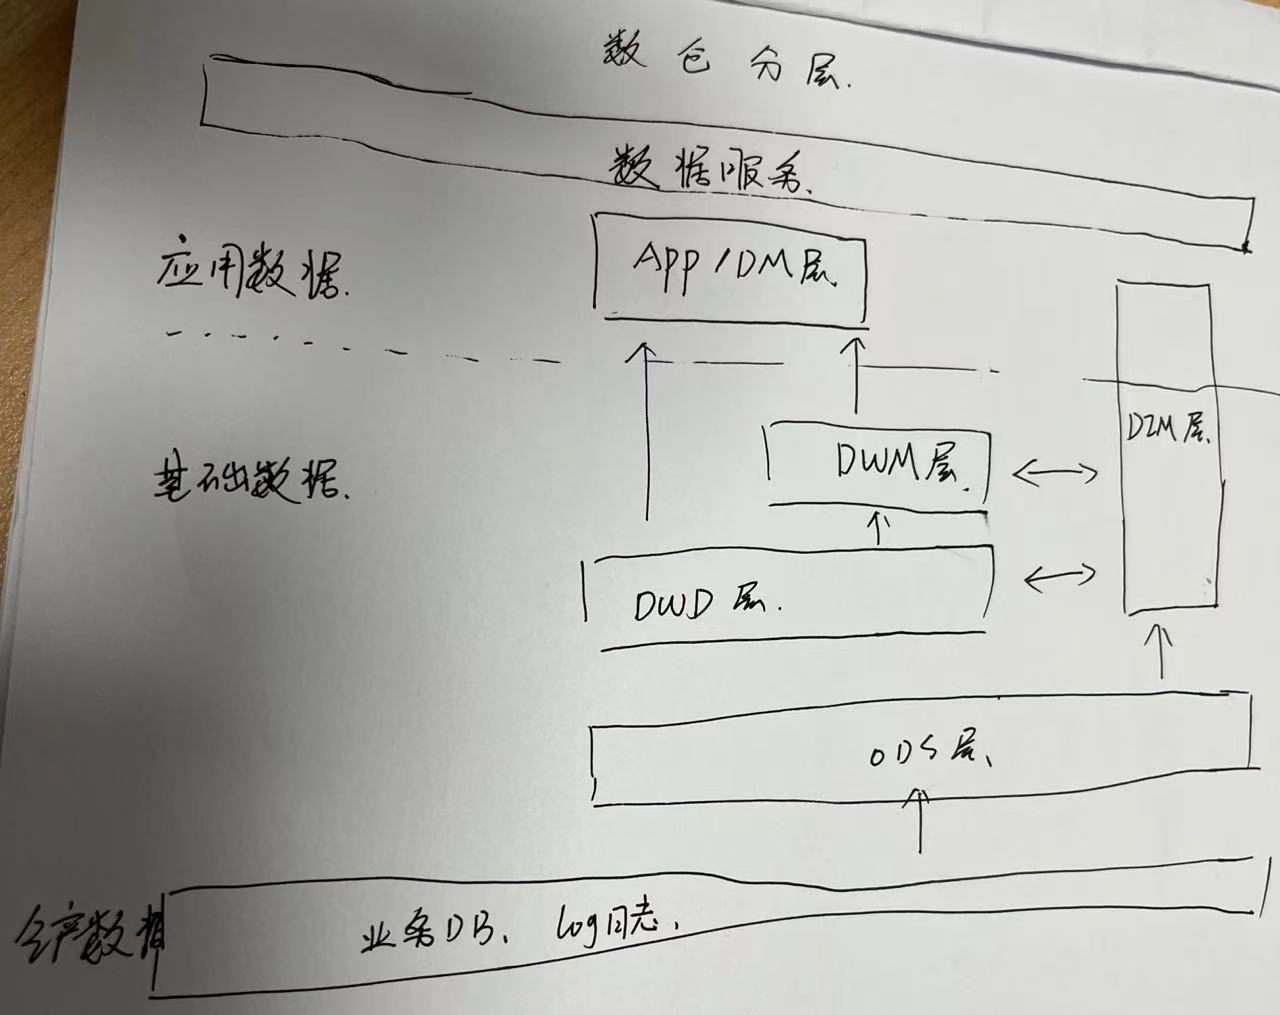 数仓分层.
数据服务.
应用数据.
APP/DM层.
基础数据.
DWM层.
DZM层.
DWD层.
ODS层、
生产数据
业务DB、 log日志.